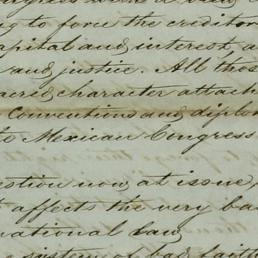 to force the creditor
capital and interest, a
and justice. All thos
and character attach
Conventions and diplo
to Mexican Congress
estion now at issue,
t affects the very ba
national law
system of bad faith